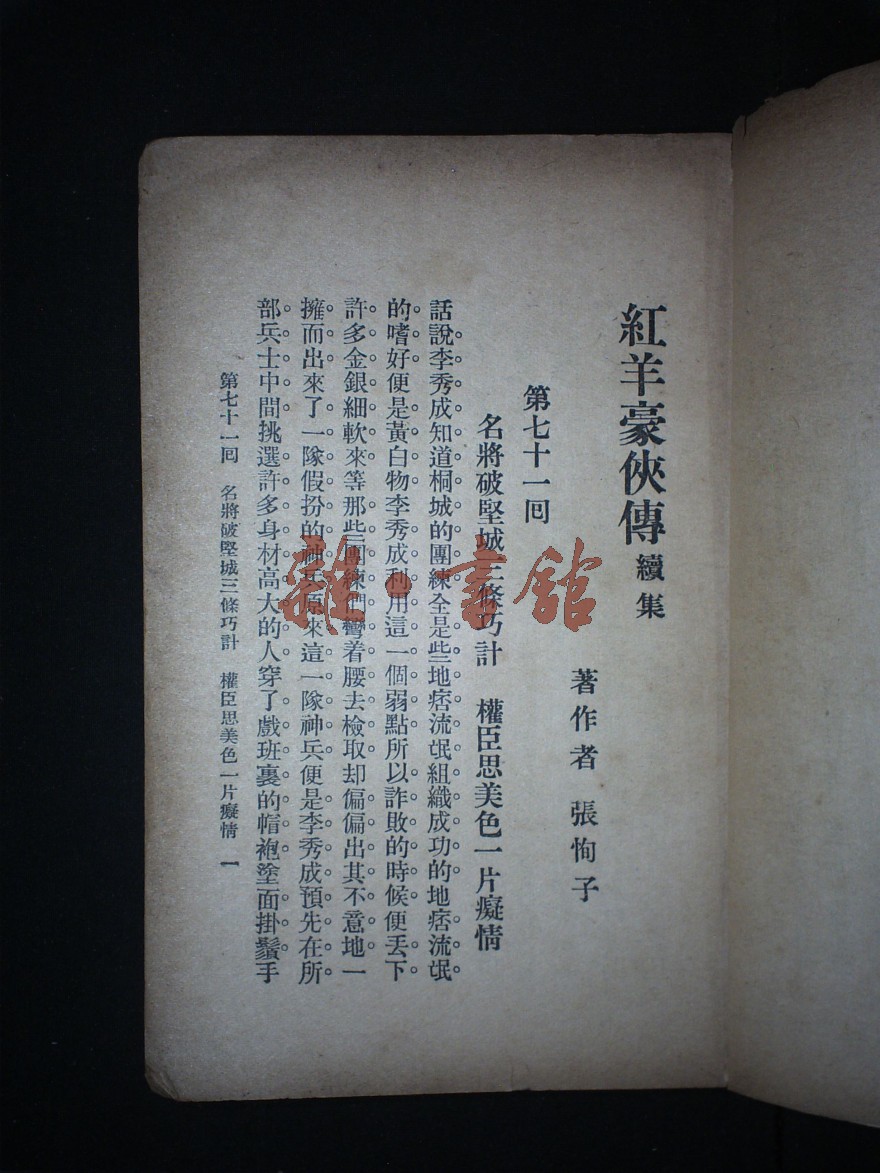 紅羊豪俠傳 續集
著作者 張恂子
第七十一囘
名將破堅城三條巧計 權臣思美色一片癡情
話說李秀成知道桐城的團練全是些地痞流氓組織成功的地痞流氓
的嗜好便是黃白物李秀成利用這一個弱點所以詐敗的時候便丟下
許多金銀細軟來等那些團練們彎着腰去檢取却偏偏出其不意地一
擁而出來了一隊假扮的神兵原來這一隊神兵便是李秀成預先在所
部兵士中間挑選許多身材高大的人穿了戲班裏的帽袍塗面掛鬚手
第七十一囘 名將破堅城三條巧計 權臣思美色一片癡情 一
雜·書館